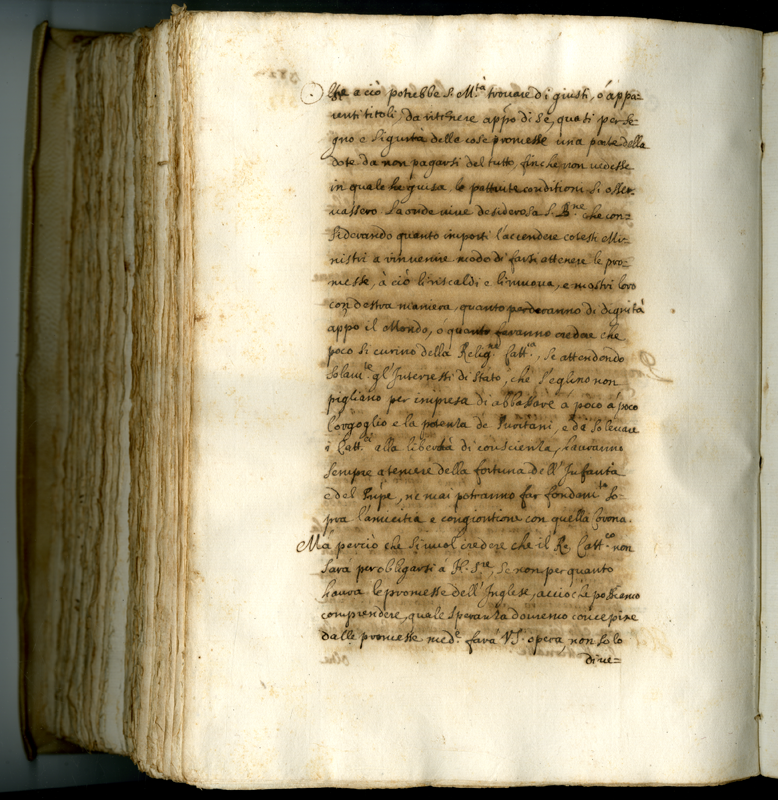 a ciò potrebbe S. M.tà trovare di giusti, ò appa=
renti titoli, da ritenere app.o di se, quasi per se=
gno e sigurtà delle cose promesse una parte della
dote da non pagarsi del tutto, finche non vedesse
in quale guisa le pattuite conditioni si osser=
vassero. La onde vive desiderosa S. B.ne che con=
siderando quanto importi l'accendere cotesti Mi=
nistri a rinvenire modo di farsi attenere le pro=
messe, à ciò li riscaldi e li muova, e mostri loro
con destra maniera, quanto perderanno di dignità
appo il Mondo, o quanto faranno credere che
poco si curino della Relig.ne Catt.ca, se attendendo
solam.te gl'Interessi di Stato, che s'eglino non
pigliano per impresa di abbassare à poco à poco
l'orgoglio e la potenza de Puritani, e da sollevare
i Catt.ci alla libertà di conscienza, hauranno
sempre a temere della fortuna dell'Infanta
e del Prñpe, ne mai potranno far fondam.to so=
pra l'amicitia e congiontione con quella Corona.
Ma perciò che si vuol credere che il Re Catt.co non
sarà per obligarsi a N. S.re, se non per quanto
haura le promesse dell'Inglese, acciòche possiamo
comprendere, quale speranza doniamo concepire
dalle promesse med.e farà VS. opera, non solo
di ve=